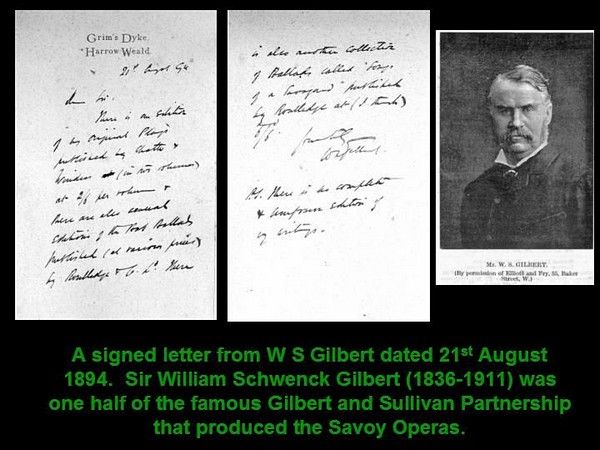 Grim's Dyke,
Harrow Weald.
21st August 94
Dear Sir
There is an edition
of my Original Plays
published by Chatto &
Windus (in two volumes)
at 2/6 per volume &
there are also several
Editions of the Bab Ballads
published (at various prices)
by Routledge & Co. There
is also another collection
of Ballads called "Songs
of a Savoyard" published
by Routledge at (I think)
WS Gilbert
P.S. There is no complete
& uniform edition of
my writings.
Mr. W. S. GILBERT.
(By permission of Elliott and Fry, 55, Baker
Street, W.)
A signed letter from W S Gilbert dated 21st August
1894. Sir William Schwenck Gilbert (1836-1911) was
one half of the famous Gilbert and Sullivan Partnership
that produced the Savoy Operas.